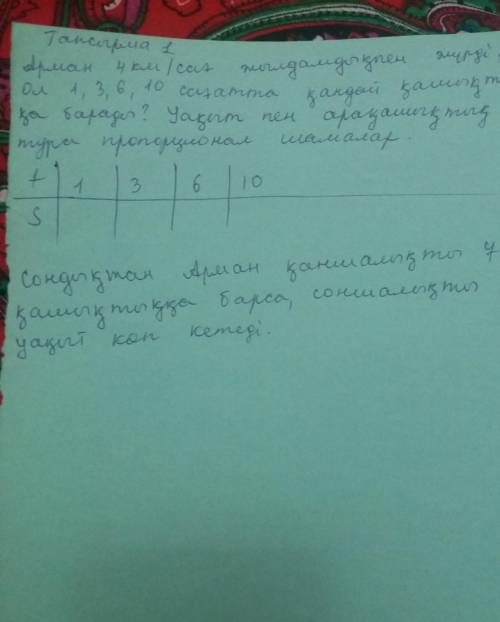 Тапсырма 1
Арман 4 км/сағ жылдамдықпен жүрді.
Ол 1, 3, 6, 10 сағатта қандай қашықтық
қа барады? Уақыт пен арақашықтық
тура пропорционал шамалар.
t 1 3 6 10
S
Сондықтан Арман қаншалықты ұ
қашықтыққа барса, соншалықты
уақыт көп кетеді.